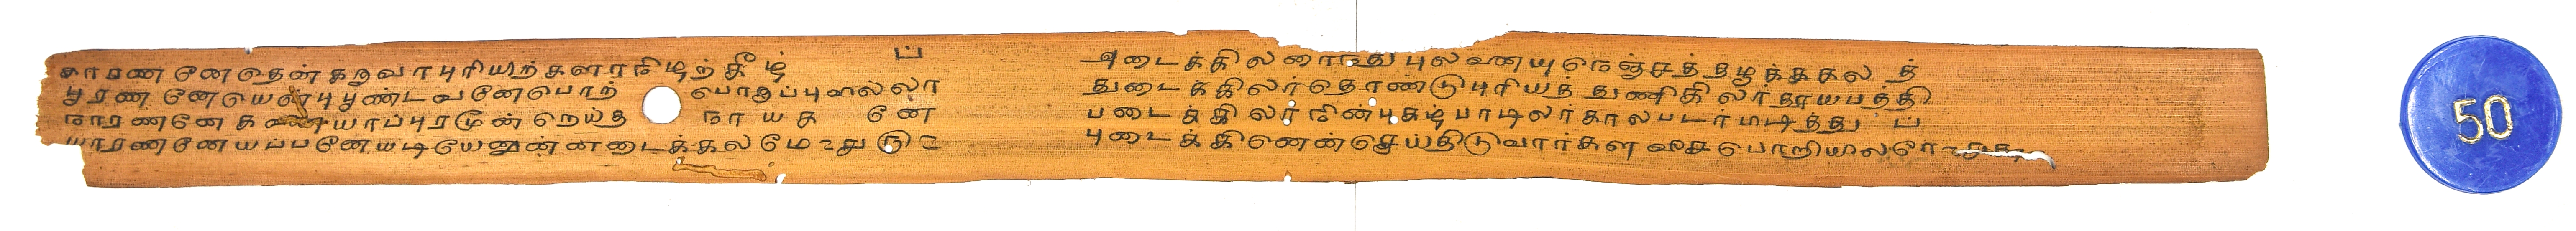 காரண னேதென் கருவா புரியிற் களா நிழற் கீழ் ப்
பூரண னேயெ புண்டவனேபொற் பொதுப்புவல்லா
நாரணனே க யாப்புரமூன் றெய்த நாயக னே
யாரணனேயப்பனேயடியேனுன்னடைக்கலமே
அடைக்கில ரைந்து புல னயு நெஞ்சத் தழுக்ககல த்
துடைக்கிலர்தொண்டு புரியத் துணிகிலர்தூயபத்தி
படைக்கிலர் நின்புகழ் பாடிலர் கால படர் மடித்து ப்
புடைக்கினென்செய்திடுவார்கள பொறியிலரே
50